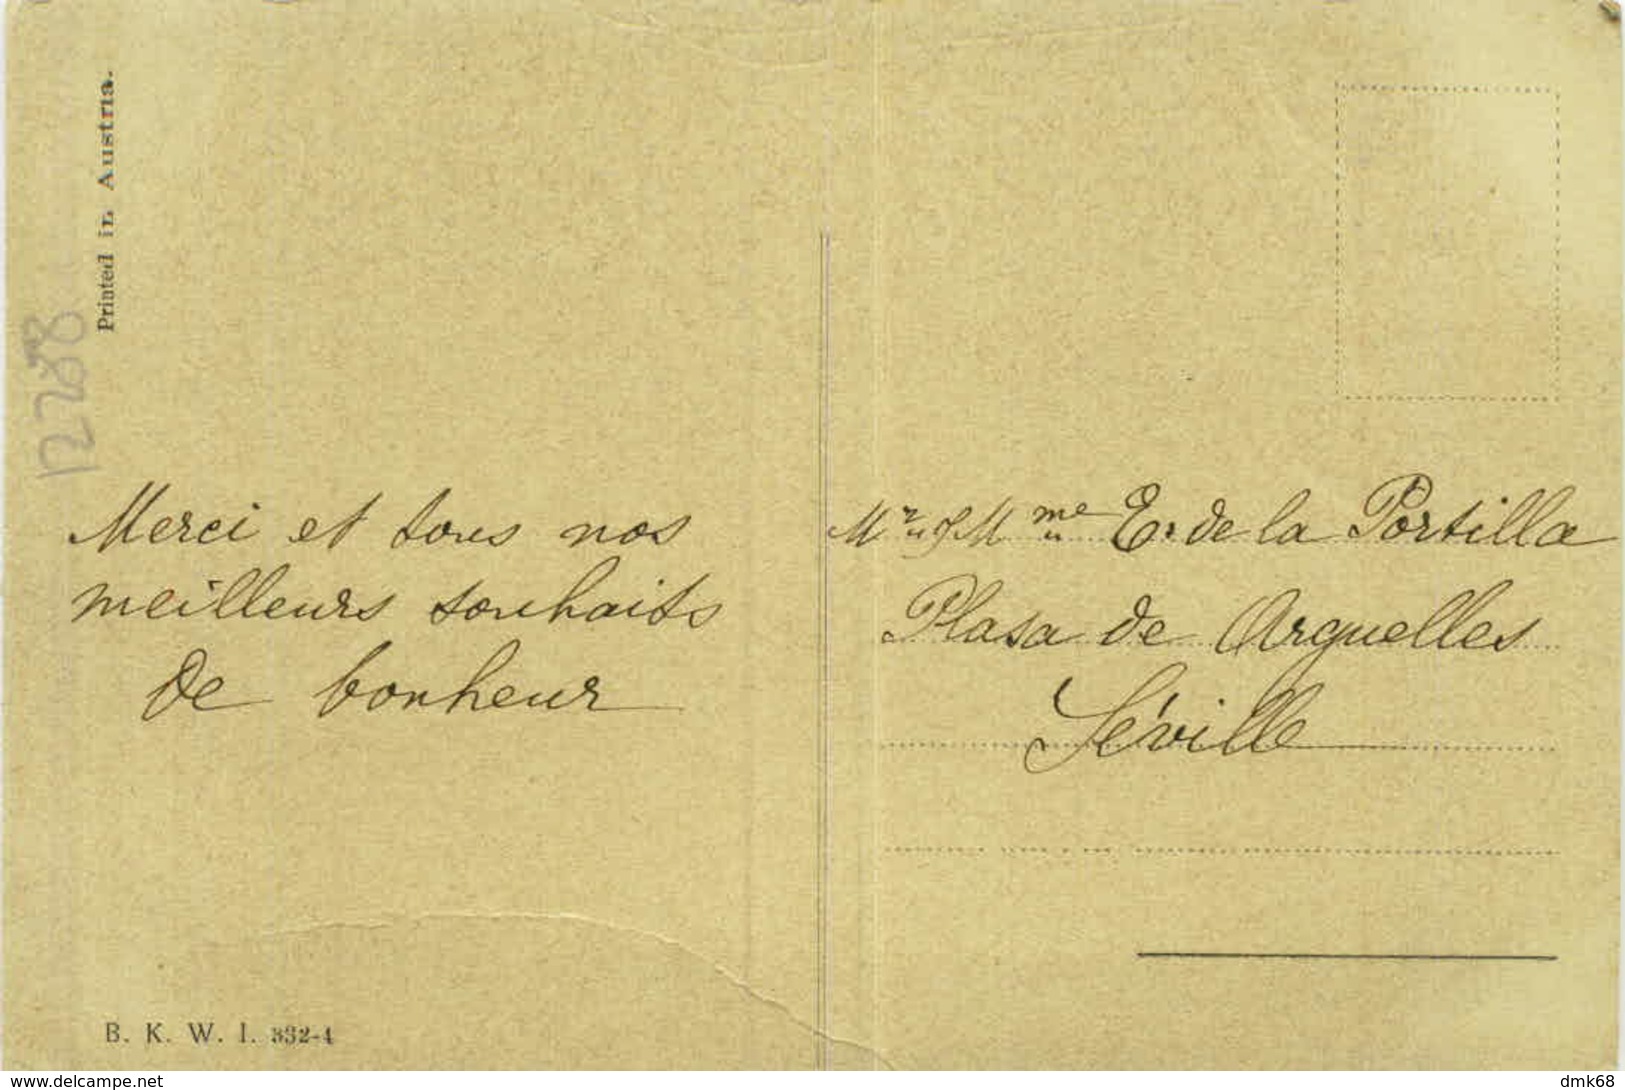 Printed in Austria.
1228
Merci et tous nos
meilleurs souhaits
de bonheur
Mr & Mme E. de la Portilla
Plasa de Arguelles
Séville
B. K. W. I. 332-4
www.delcampe.net
dmk68